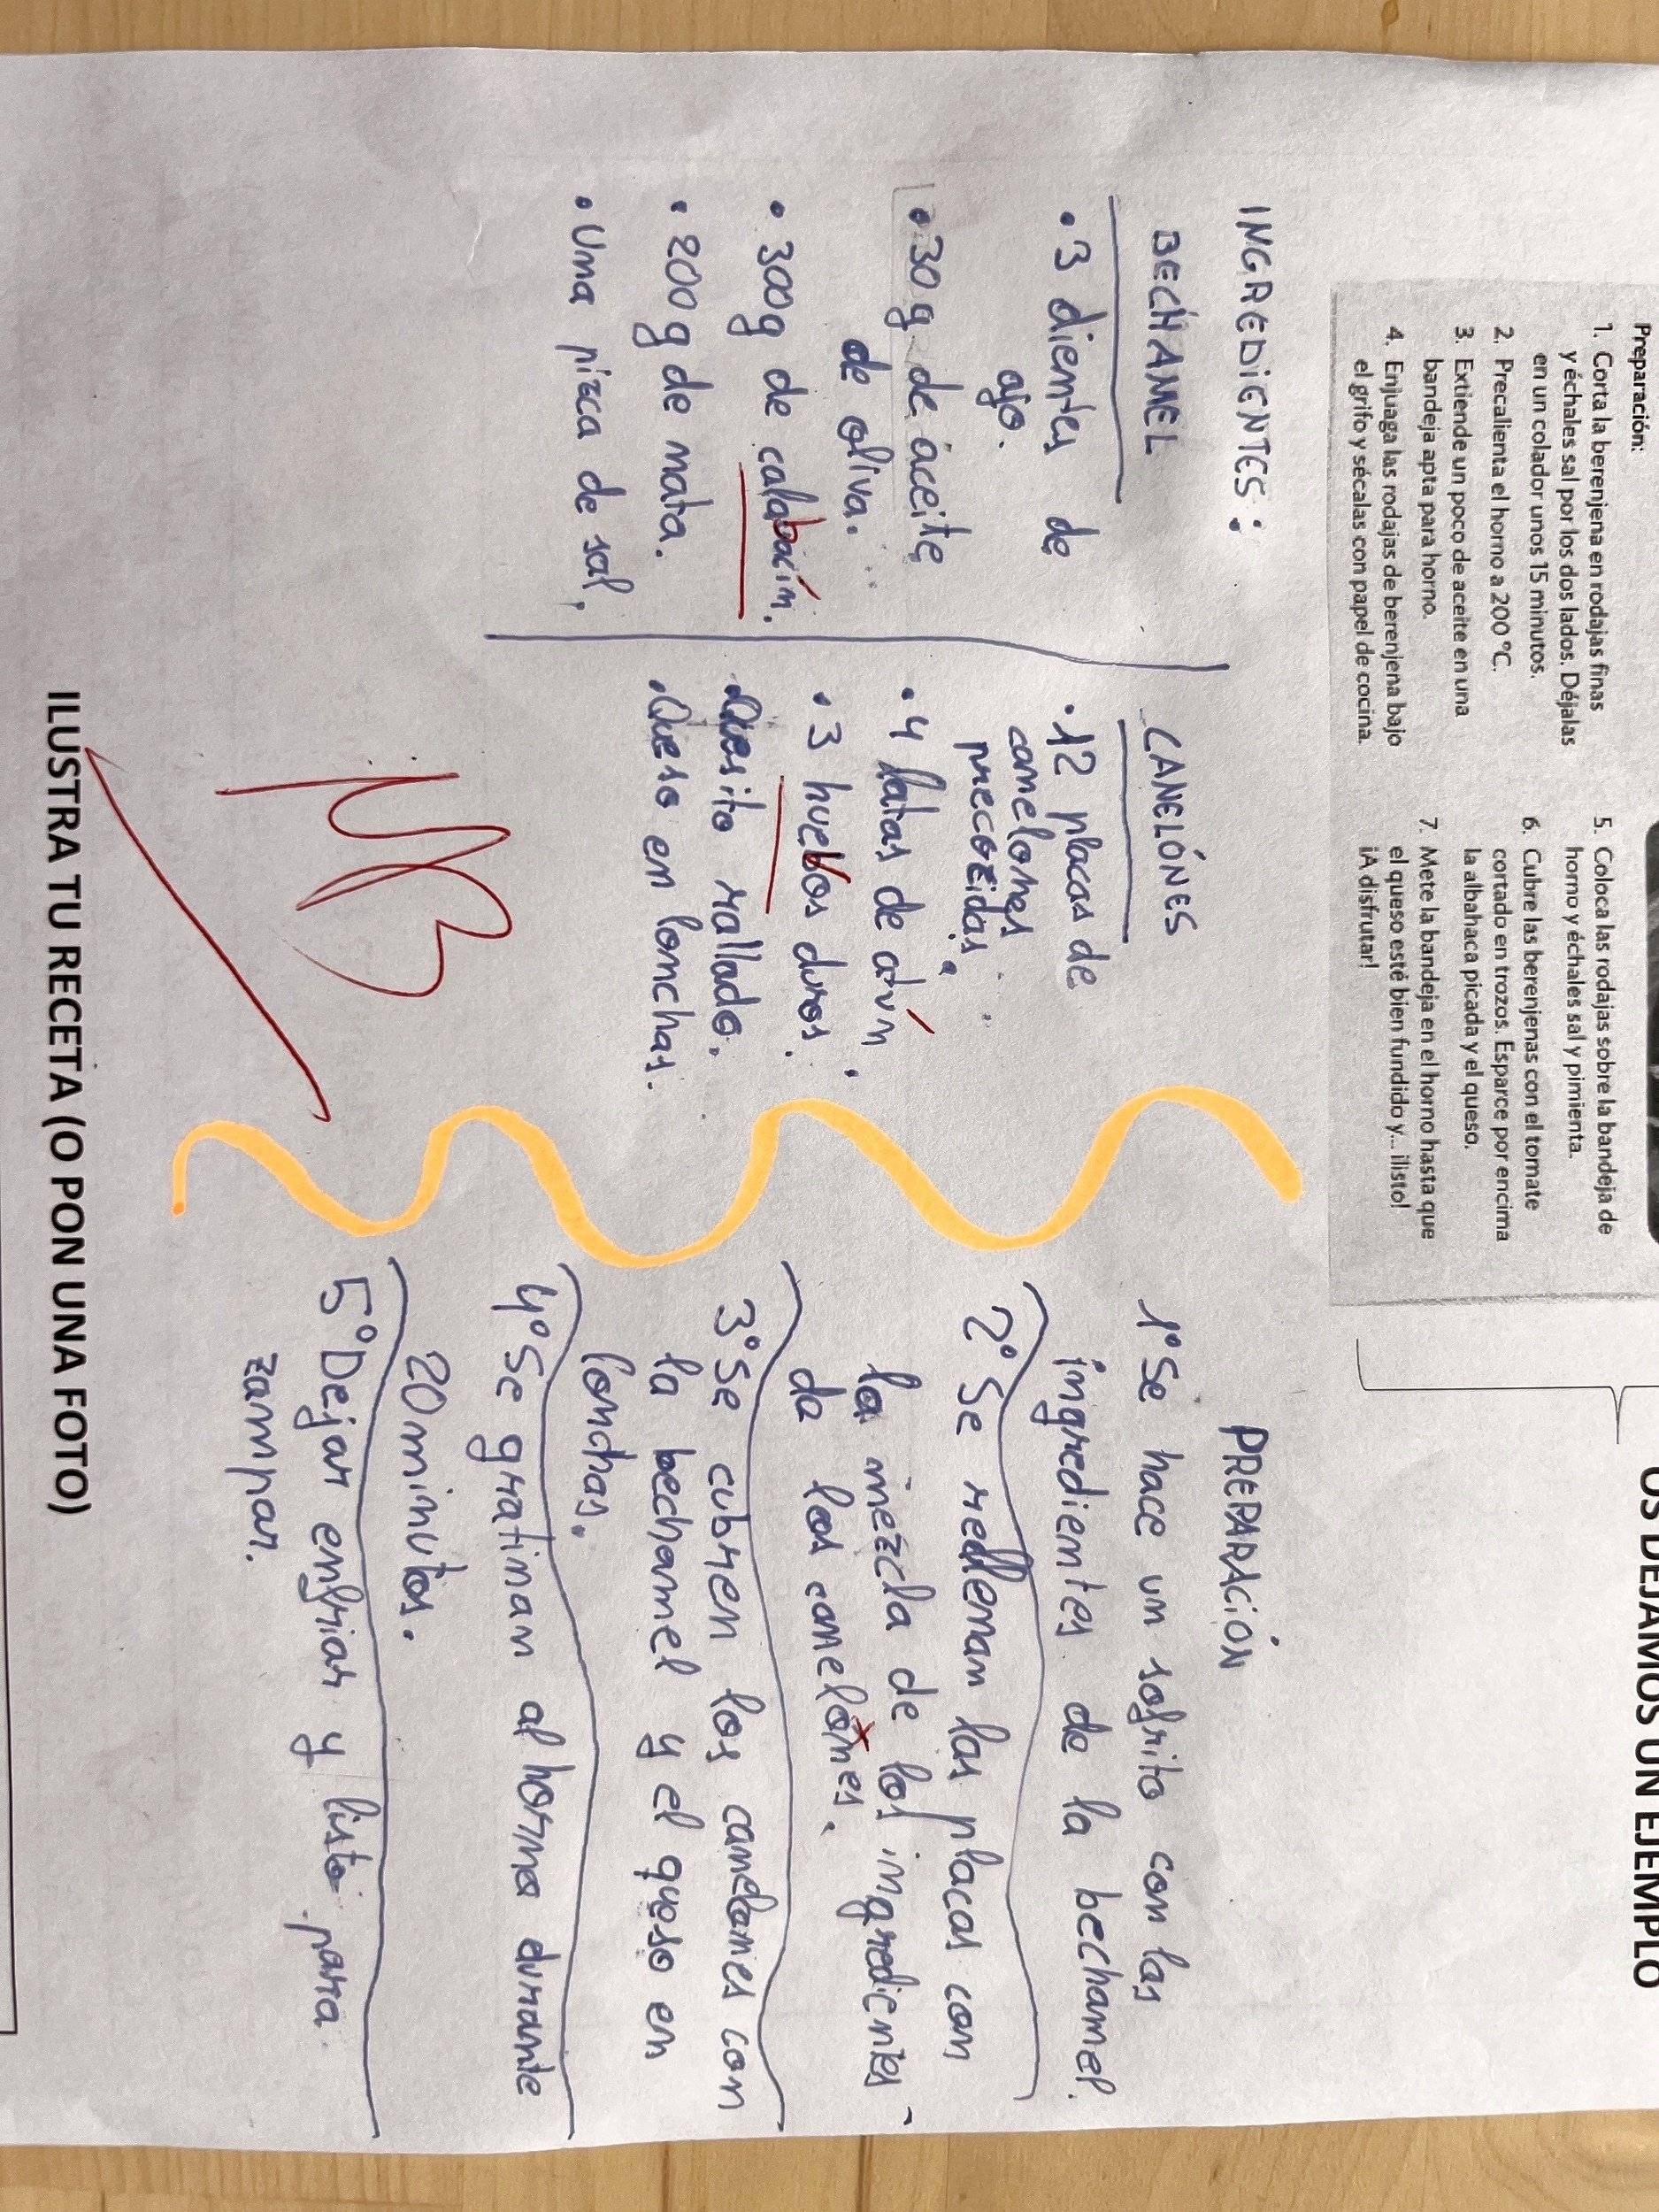 OS DEJAMOS UN EJEMPLO
Preparación:
1. Corta la berenjena en rodajas finas
y échales sal por los dos lados. Déjalas
en un colador unos 15 minutos.
2. Precalienta el horno a 200 °C.
3. Extiende un poco de aceite en una
bandeja apta para horno.
4. Enjuaga las rodajas de berenjena bajo
el grifo y sécalas con papel de cocina.
5. Coloca las rodajas sobre la bandeja de
horno y échales sal y pimienta.
6. Cubre las berenjenas con el tomate
cortado en trozos. Esparce por encima
la albahaca picada y el queso.
7. Mete la bandeja en el horno hasta que
el queso esté bien fundido y... ¡listo!
¡A disfrutar!
INGREDIENTES:
BECHAMEL
• 3 dientes de
ajo.
• 30 g de aceite
de oliva.
• 300g de calabacín.
• 200g de nata.
• Una pizca de sal.
CANELÓNES
• 12 placas de
canelones
precocidas.
• 4 latas de atún.
• 3 huebos duros.
• Quesito rallado.
• Queso en lonchas.
MB
PREPARACIÓN
1º Se hace un sofrito con las
ingredientes de la bechamel.
2º Se rellenan las placas con
la mezcla de los ingredientes
de los canelones.
3º Se cubren los canelones con
la bechamel y el queso en
lonchas.
4º Se gratinan al horno durante
20 minutos.
5º Dejar enfriar y listo para
zampar.
ILUSTRA TU RECETA (O PON UNA FOTO)